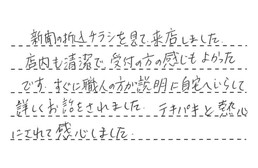 新聞の折込チラシを見て来店しました
店内も清潔で、受付の方の感じもよかった
です。すぐに職人の方が説明に自宅へいらして
詳しくお話をされました。テキパキと熱心
にされて感心しました.